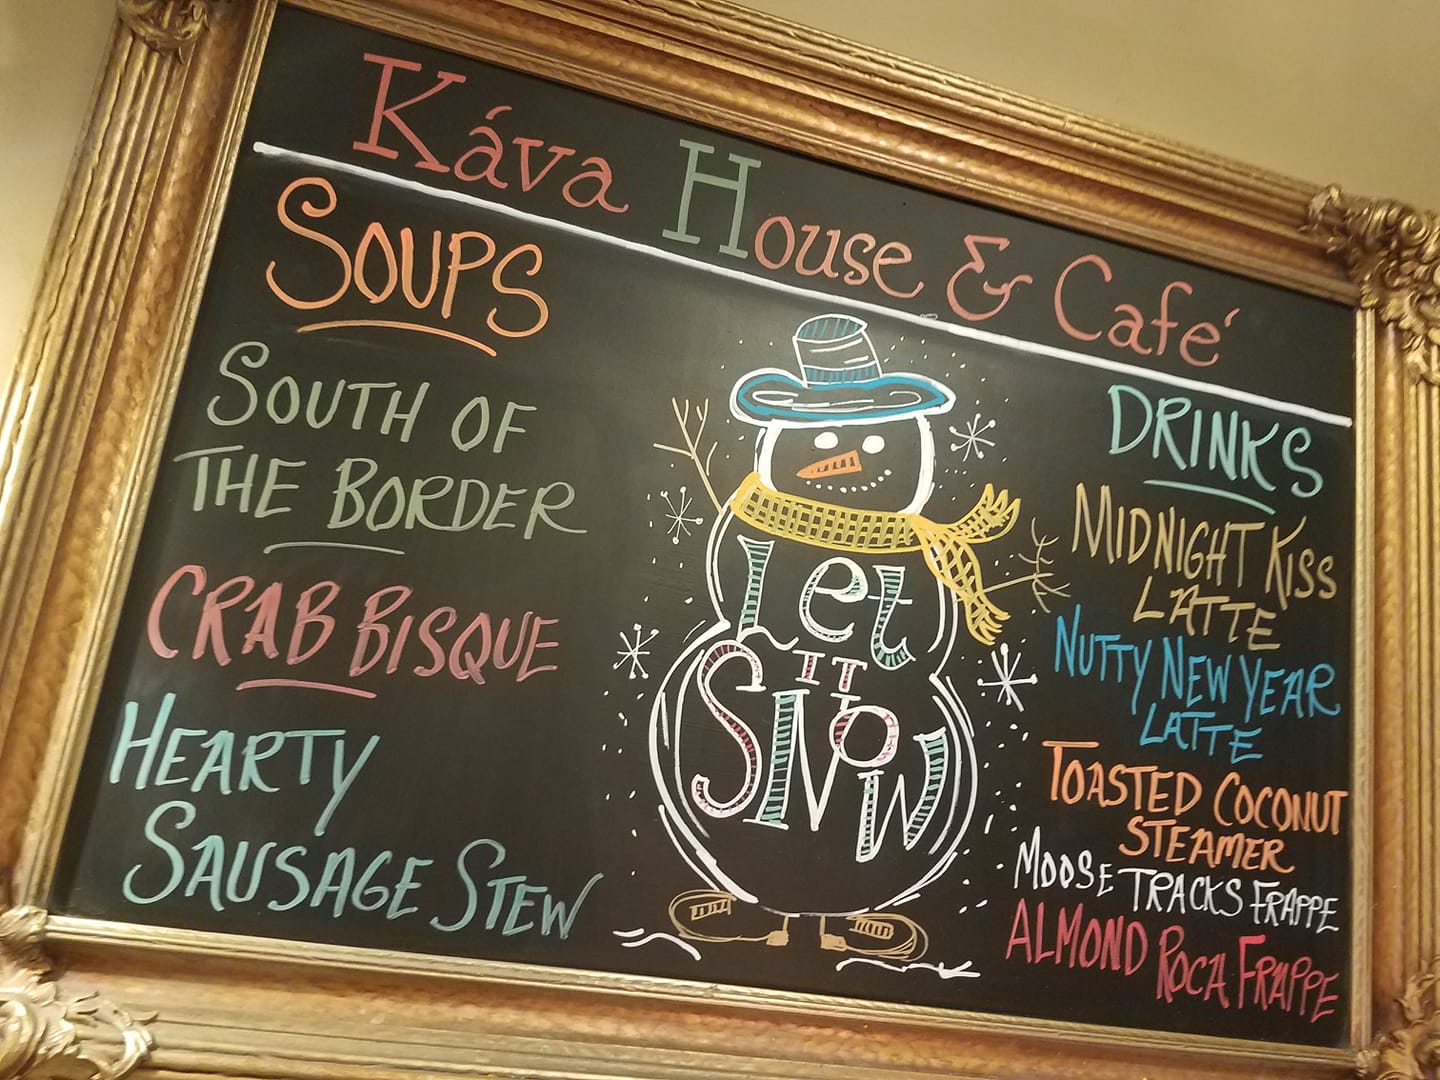 Káva House & Café
SOUPS
SOUTH OF
THE BORDER
CRAB BISQUE
HEARTY
SAUSAGE STEW
Let
IT
SNOW
DRINKS
MIDNIGHT KISS
LATTE
NUTTY NEW YEAR
LATTE
TOASTED COCONUT
STEAMER
MOOSE TRACKS FRAPPE
ALMOND ROCA FRAPPE